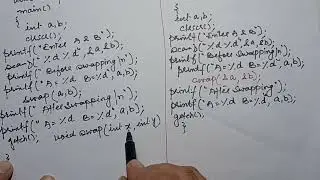 main()
{
int a,b;
clrscr();
printf("Enter A & B");
scanf("%d %d",&a,&b);
printf("Before Swapping\n");
printf("A=%d B=%d",a,b);
swap(a,b);
printf("After Swapping\n");
printf("A=%d B=%d",a,b);
getch();
}
void swap(int x,int y)
{
int a,b;
clrscr();
printf("Enter A & B");
scanf("%d %d",&a,&b);
printf("Before Swapping\n");
printf("A=%d B=%d",a,b);
swap(&a,&b);
printf("After Swapping\n");
printf("A=%d B=%d",a,b);
getch();
}